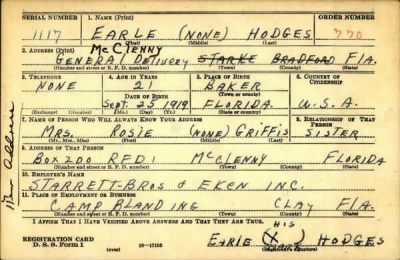 SERIAL NUMBER 1. NAME (Print) ORDER NUMBER
1117 EARLE (NONE) HODGES 770
(First) (Middle) (Last)
2. ADDRESS (Print) McClenny
GENERAL Delivery STARKE BRADFORD FlA.
(Number and street or R. F. D. number) (Town) (County) (State)
3. TELEPHONE 4. AGE IN YEARS 5. PLACE OF BIRTH 6. COUNTRY OF CITIZENSHIP
NONE 21 BAKER
DATE OF BIRTH (Town or county)
Sept. 25 1919 FLORIDA U.S.A.
(Exchange) (Number) (Mo.) (Day) (Yr.) (State or country)
7. NAME OF PERSON WHO WILL ALWAYS KNOW YOUR ADDRESS 8. RELATIONSHIP OF THAT PERSON
MRS. ROSIE (NONE) GRIFFIS SISTER
(Mr., Mrs., Miss) (First) (Middle) (Last)
9. ADDRESS OF THAT PERSON
BOX 200 RFD 1 McCLENNY FLORIDA
(Number and street or R. F. D. number) (Town) (County) (State)
10. EMPLOYER'S NAME
STARRETT-BROS & EKEN INC.
11. PLACE OF EMPLOYMENT OR BUSINESS
CAMP BLANDING CLAY FlA.
(Number and street or R. F. D. number) (Town) (County) (State)
I AFFIRM THAT I HAVE VERIFIED ABOVE ANSWERS AND THAT THEY ARE TRUE.
HIS
REGISTRATION CARD EARLE (X) HODGES
D. S. S. Form 1 16-17105 MARK (Registrant's signature)